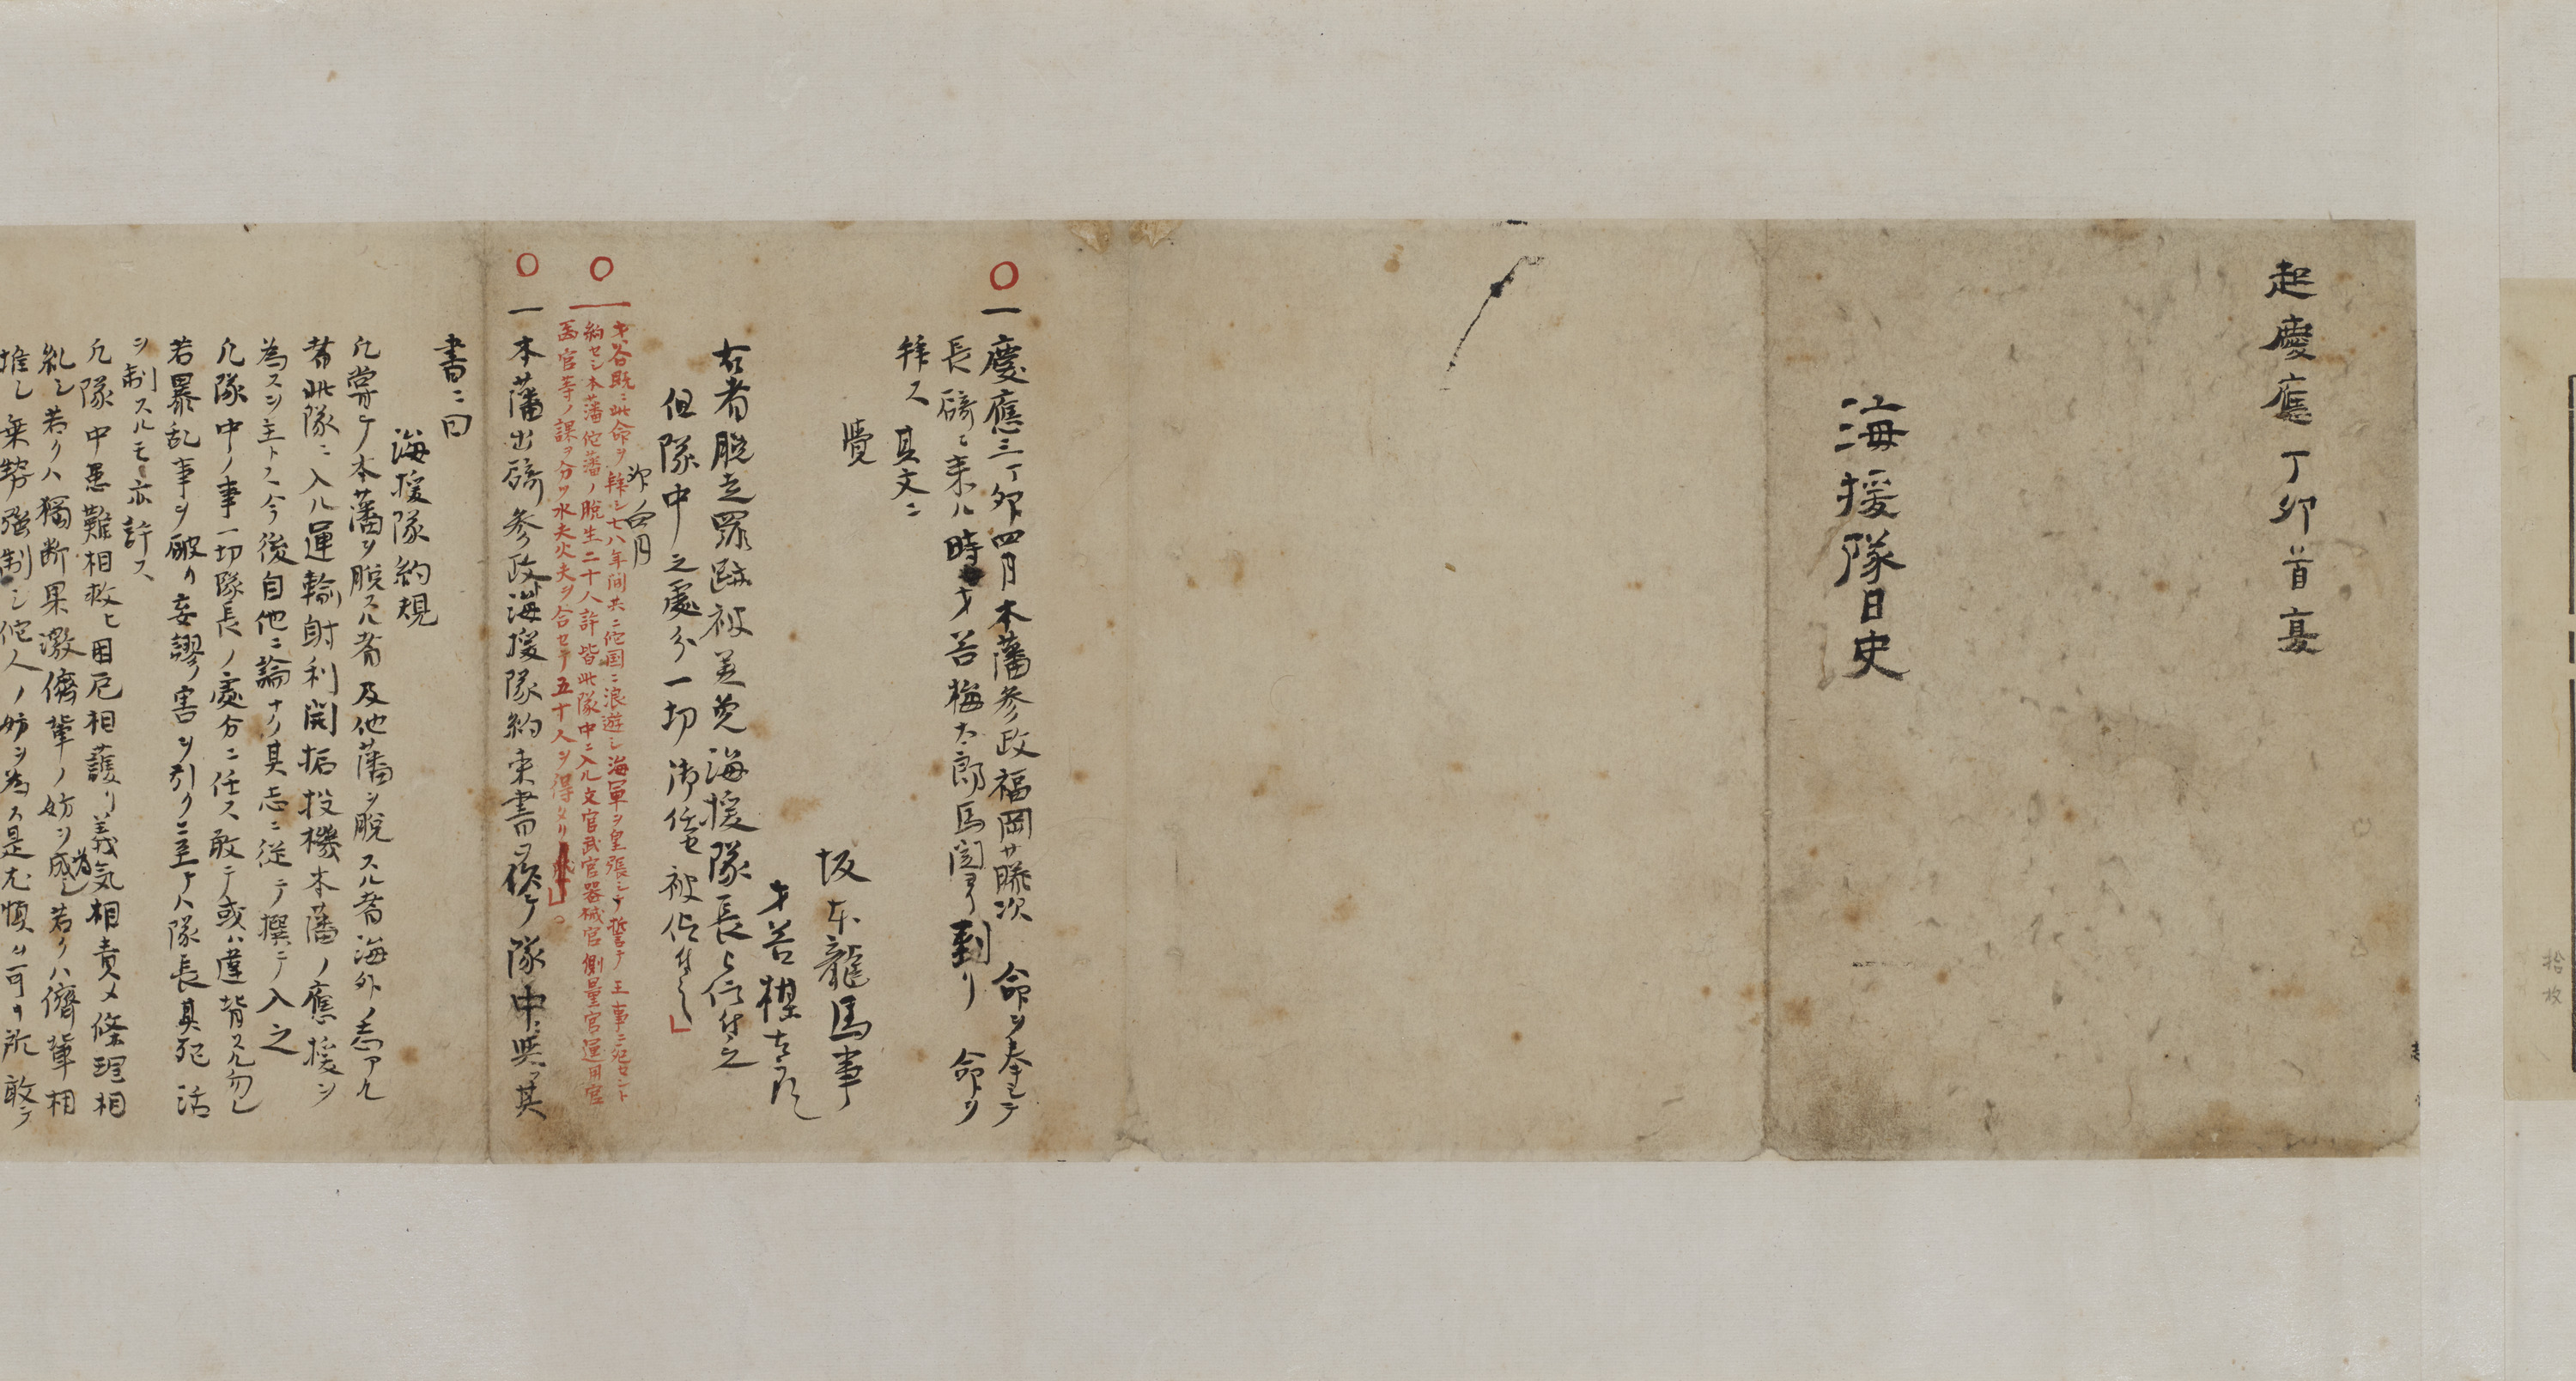 起慶應丁卯首夏
海援隊日史
一慶應三丁卯四月本藩参政福岡藤次 命ヲ奉シテ
長﨑ニ来ル時才谷梅太郎馬関ヨリ到リ 命ヲ
拜ス其文ニ
覺
坂本龍馬事
才谷梅太郎
右者脱走罪跡被差免海援隊長被仰付之
但隊中之處分一切御任セ被仰付之
卯四月
才谷既ニ此命ヲ拜シ七八年間共ニ佗国ニ浪遊シ海軍ヲ皇張シテ誓テ王事ニ死セント
約セシ本藩佗藩ノ脱生二十八許皆此隊中ニ入ル文官武官器械官測量官運用官
医官等ノ課ヲ分ツ水夫火夫ヲ合セテ五十人ヲ得タリ
一本藩出﨑参政海援隊約束書ヲ作テ隊中ニ與フ其
書ニ曰
海援隊約規
凡嘗テ本藩ヲ脱スル者及他藩ヲ脱スル者海外ノ志アル
者此隊ニ入ル運輸射利開拓投機本藩ノ應援ヲ
為スヲ主トス今後自他ニ論ナク其志ニ従テ撰テ入之
凡隊中ノ事一切隊長ノ處分ニ任ス敢テ或ハ違背スル勿レ
若暴乱事ヲ破リ妄謬害ヲ引クニ至テハ隊長其死活
ヲ制スルモ亦許ス
凡隊中患難相救ヒ困厄相護リ義気相責メ條理相
糺シ若クハ獨断果激儕輩ノ妨ヲ成シ若クハ儕輩相
推シ乗勢強制シ佗人ノ妨ヲ為ス是尤慎ム可キ所敢テ
拾枚